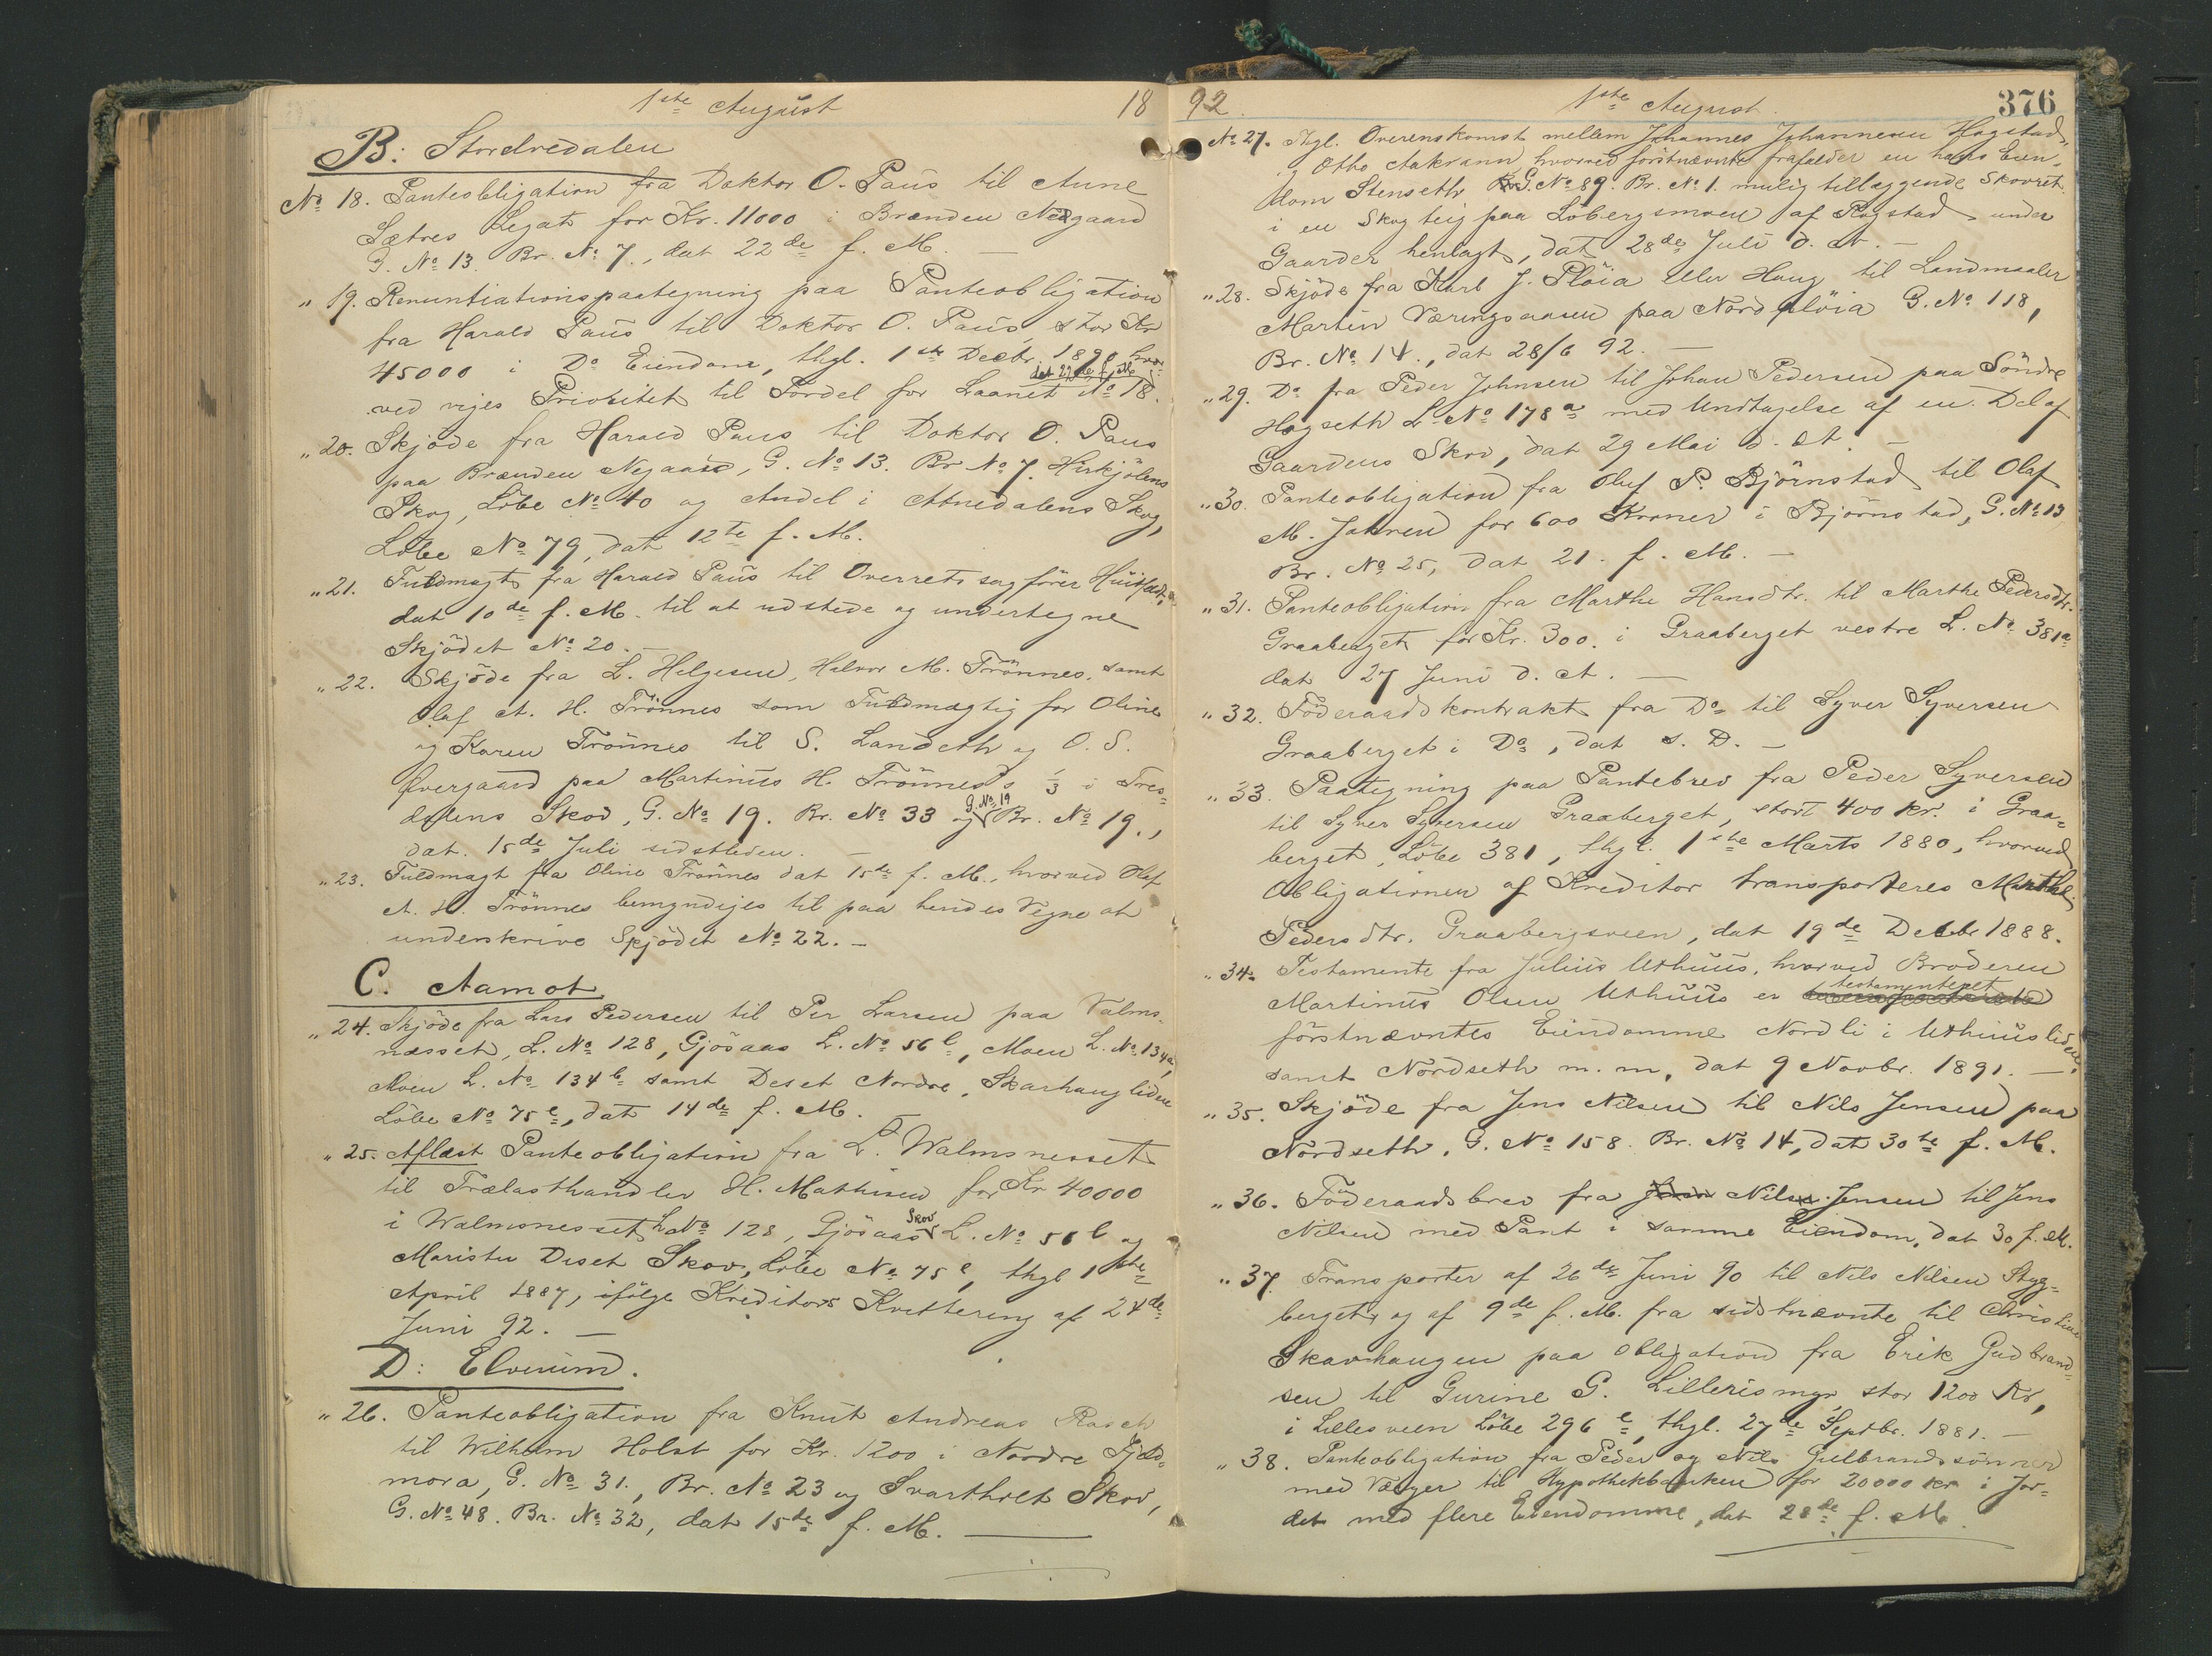 1ste August 18
B: Storelvedalen
No 18. Panteobligation fra Doktor O. Paus til Anne
Sætres Legat for Kr. 11000 i Brænden Nedgaard
G. No 13. Br. No 7., dat 22de f. M. —
" 19. Renuntiationspaategning paa Panteobligation
fra Harald Paus til Doktor O. Paus, stor Kr
45000 i Do Eiendom, thgl. 1ste Decbr. 1890, hvor-
dat 22de f. M.
ved viges Prioritet til Fordel for Laanet No 18.
" 20. Skjøde fra Harald Paus til Doktor O. Paus
paa Brænden Negaard, G. No 13. Br No 7. Hirkjølens
Skog, Löbe No 40 og Andel i Atnedalens Skog,
Löbe No 79, dat 12te f. M.
" 21. Fuldmagt fra Harald Paus til Overretssagfører Huitfeldt,
dat 10de f. M. til at udstede og undertegne
Skjødet No 20. —
" 22. Skjøde fra L. Helgesen, Halvor M. Trønnes, samt
Olaf A. H. Trønnes som Fuldmægtig for Oline
og Karen Trønnes til S. Landeth og O. S.
Øvergaard paa Martinus H. Trønnes's 1/3 i Tres-
dalens Skov, G. No 19. Br. No 33 og G. No 19 Br. No 19.,
dat. 15de Juli sidstleden. —
" 23. Fuldmagt fra Oline Trønnes dat 15de f. M., hvorved Olaf
A. H. Trønnes bemyndiges til paa hendes Vegne at
underskrive Skjødet No 22. —
C. Aamot
" 24. Skjøde fra Lars Pedersen til Per Larsen paa Valms-
næsset, L. No 128, Gjösaas L. No 56b, Moen L. No 134a,
Moen L. No 134b samt Deset Nordre, Skarhaugliden
Löbe No 75e, dat 14de f. M. —
" 25. Aflæst Panteobligation fra L. Walmsnesset
til Trælasthandler H. Mathisen for Kr 40000
i Walmsnesset L No 128, Gjösaas Skov L. No 56b og
Maristu Deset Skov, Löbe No 75e, thgl 1ste
April 1887, ifølge Kreditors Kvittering af 24de
Juni 92. —
D: Elverum.
" 26. Panteobligation fra Knut Andreas Rasch
til Wilhelm Holst for Kr. 1200 i Nordre Fjeld-
mora, G. No 31., Br. No 23 og Svartholt Skov,
G. No 48. Br. No 32, dat 15de f. M. —
92. 1ste August. 376
No 27. Thgl. Overenskomst mellem Johannes Johannesen Hagstad,
og Otto Aakrann hvorved førstnævnte frafalder en hans Eien-
dom Stenseth G. No 89. Br. No 1. mulig tillæggende Skovret
i en Skogteig paa Löbergsmoen af Rogstad under
Gaarder henlagt, dat 28de Juli d. A. —
" 28. Skjøde fra Karl J. Pløia eller Haug til Landmaaler
Martin Væringsaasen paa Nordpløia G. No 118,
Br. No 14., dat 28/6 92. —
" 29. Do fra Peder Johnsen til Johan Pedersen paa Søndre
Hogseth L. No 178a med Undtagelse af en Del af
Gaardens Skov, dat 29 Mai d. A. —
" 30. Panteobligation fra Oluf P. Björnstad til Olaf
M. Jahren for 600 Kroner i Björnstad, G. No 13
Br. No 25, dat 21. f. M. —
" 31. Panteobligation fra Marthe Hansdtr. til Marthe Pedersdtr.
Graaberget for Kr. 300. i Graaberget vestre L. No 381a
dat 27 Juni d. A. —
" 32. Föderaadskontrakt fra Do til Syver Syversen
Graaberget i Do, dat s. D. —
" 33. Paategning paa Pantebrev fra Peder Syversen
til Syver Syversen Graaberget, stort 400 kr. i Graa-
berget, Löbe 381, thgl. 1ste Marts 1880, hvorved
Obligationen af Kreditor transporteres Marthe
Pedersdtr. Graabergsveen, dat 19de Decbr 1888.
" 34. Testamente fra Julius Uthuus, hvorved Broderen
Martinus Olsen Uthuus er testamenteret
førstnævntes Eiendomme Nordli i Uthuusliden,
samt Nordseth m. m, dat 9 Novbr. 1891. —
" 35. Skjøde fra Jens Nilsen til Nils Jensen paa
Nordseth, G. No 158. Br. No 14, dat 30te f. M.
" 36. Föderaadsbrev fra Nils Jensen til Jens
Nilsen med Pant i samme Eiendom, dat 30 f. M.
" 37. Transporter af 26de Juni 90 til Nils Nilsen Styg-
berget, og af 9de f. M. fra sidstnævnte til Christine
Skavhaugen paa Obligation fra Erik Gudbrand-
sen til Gurine G. Lillerismyr, stor 1200 Kr,
i Lillesveen Löbe 296e, thgl. 27de Septbr. 1881. —
" 38. Panteobligation fra Peder og Nils Gulbrandssønner
med Værger til Hypothekbanken for 20000 kr i Jor-
det med flere Eiendomme, dat 28de f. M.